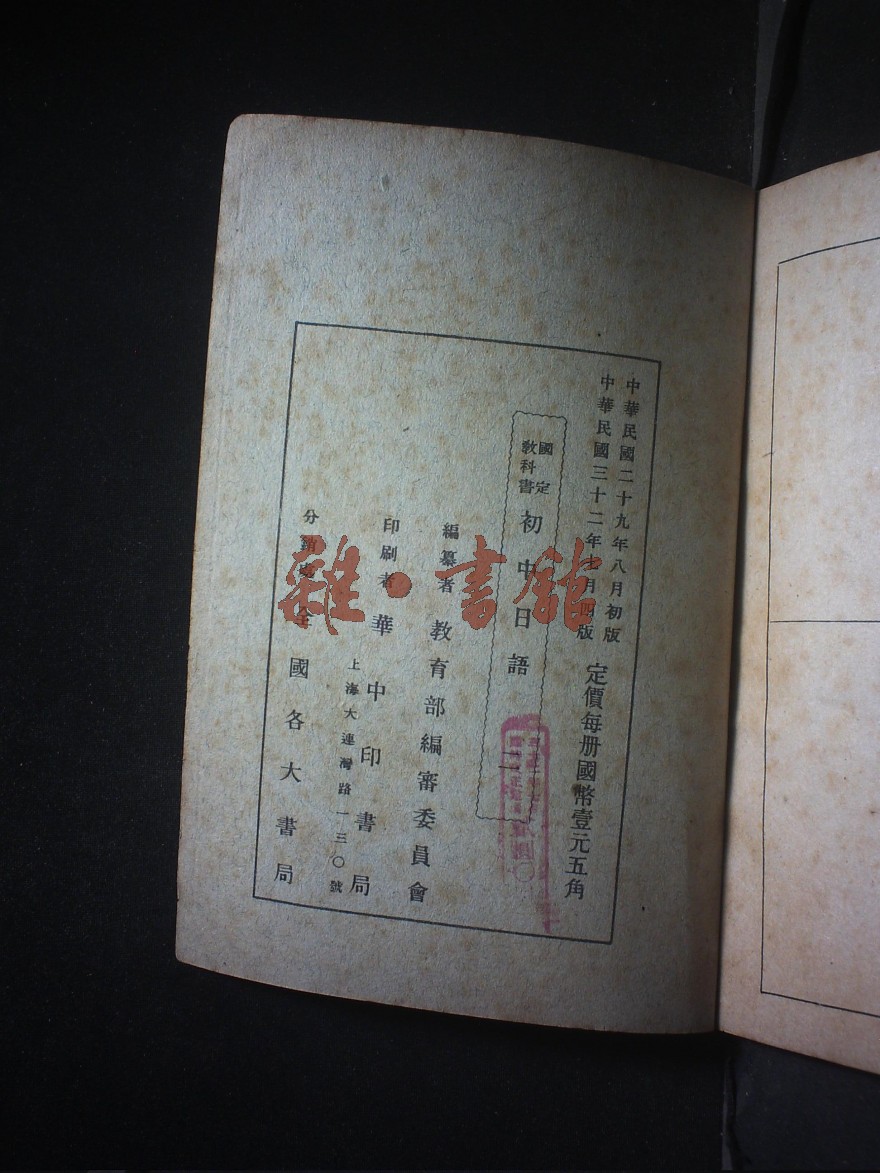 中華民國二十九年八月初版
中華民國三十二年七月四版
定價每册國幣壹元五角
國定
教科書
初中日語 二
編纂者 教育部編審委員會
印刷者 華中印書局
上海大連灣路一三〇號
分銷處 全國各大書局
雜·書館